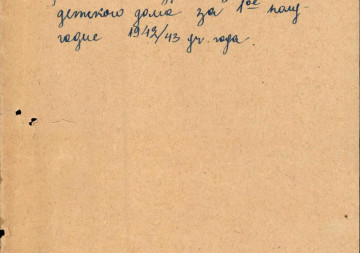 детского дома за 1ое полу-
годие 1942/43 уч. года.